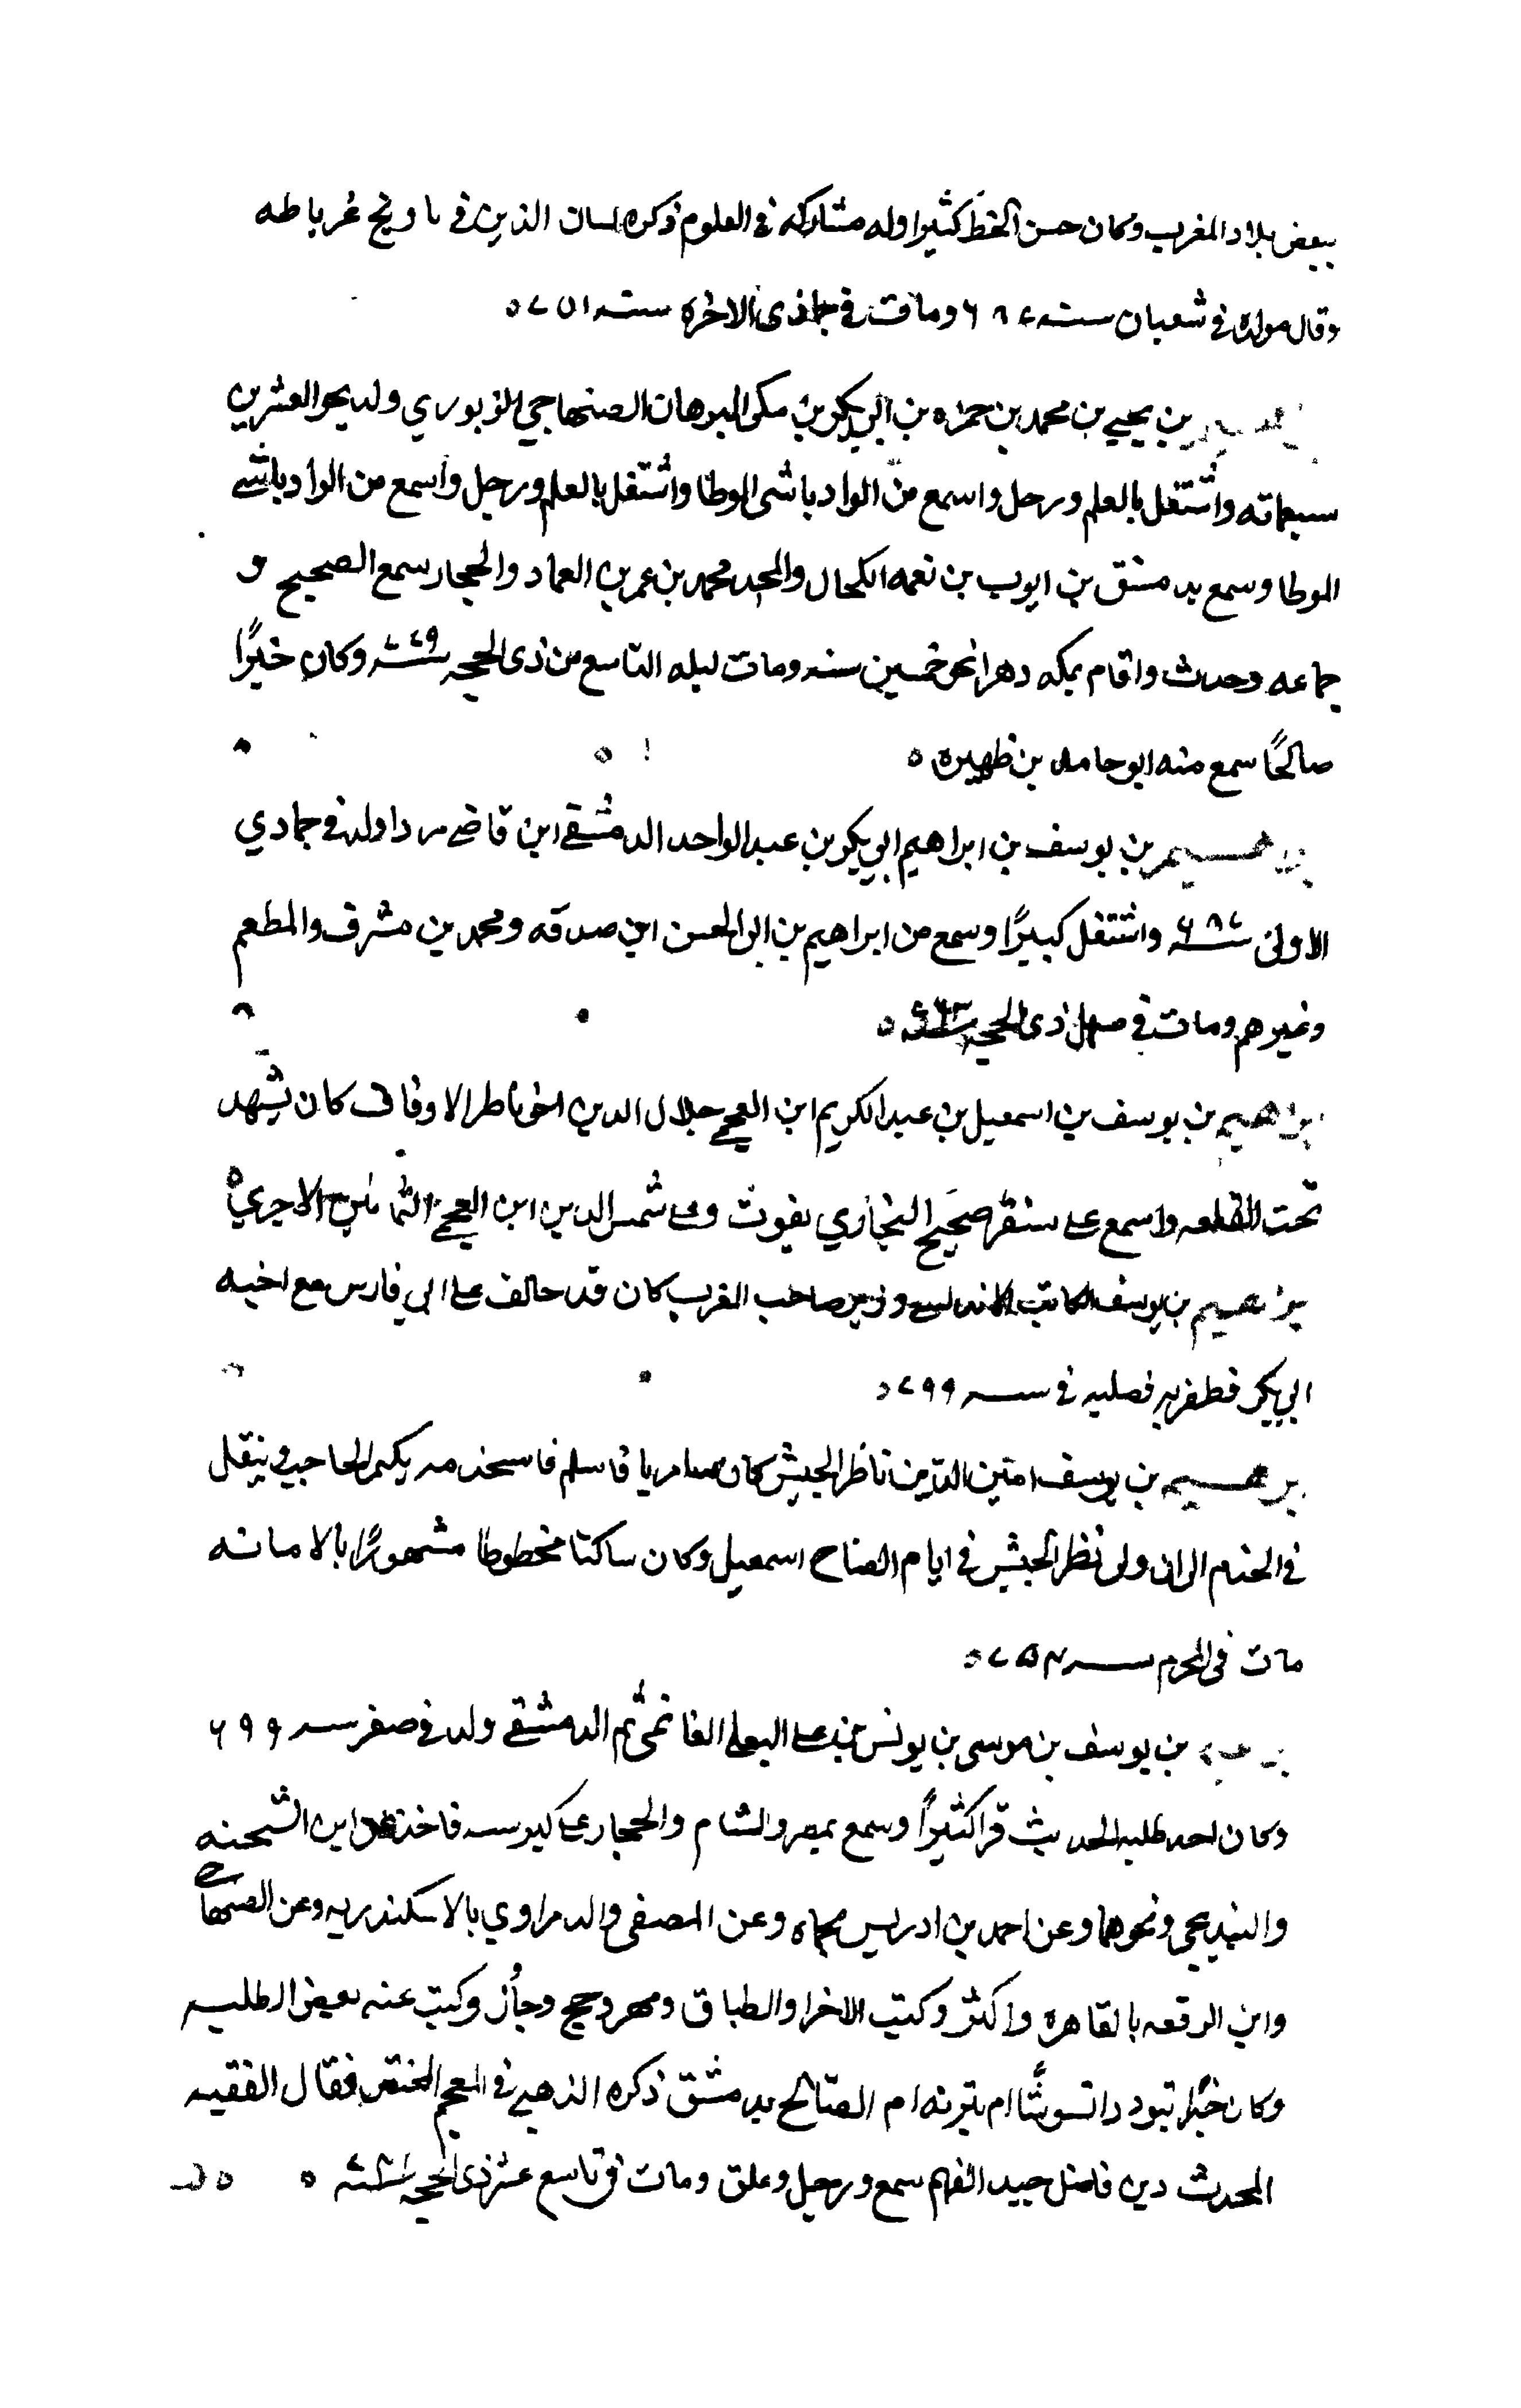 ببعض بلاد المغرب وكان حسن الخط كثيرا وله مشاركه في العلوم ذكره لسان الدين في تاريخ غرناطه
وقال مولده في شعبان سنه ٦٨٧ ومات في جمادى الاخره سنه ٧٥١
بن يحيي بن محمد بن حمزه بن ابي بكر بن مكى البرهان الصنهاجي ولد بحو العشرين
سبعمائه واشتغل بالعلم ورحل واسمع من الوادياشى الموطا واشتغل بالعلم ورحل واسمع من الوادياشى
الموطا وسمع بدمشق بن ايوب بن نعمه الكحال والمجد محمد بن عمر بن العماد والحجار سمع الصحيح و
جماعه وحدث واقام بمكه دهرا نحو خمسين سنه ومات ليله التاسع من ذى الحجه سنه ٧٧٩ وكان خيرًا
صالحًا سمع منه ابو حامد بن ظهيره ه
ابرهسيم بن يوسف بن ابراهيم ابي بكر بن عبد الواحد الدمشقي ابن قاضي مردا ولد في جمادي
الاولى سنه ٦٨٧ واشتغل كبيرًا وسمع من ابراهيم بن ابى الحسن ابن صدقه ومحمد بن مشرف والمطعم
وغيرهم ومات في ذى الحجه
ابراهيم بن يوسف بن اسمعيل بن عبد الكريم ابن العجمي جلال الدين اخو ناظر الاوقاف كان يشهد
تحت القلعه واسمع على سنقر صحيح البخاري بفوت وعلى شمس الدين ابن العجمي الاجري ه
ابراهيم بن يوسف الكاتب الاندلسي وزير صاحب المغرب كان قد حالف على ابي فارس مع اخيه
ابي بكر فظفر به فصلبه في سنه ٧٩٩
ابرهسيم بن يوسف امين الدين ناظر الجيش كان سامريا فاسلم فاستخدمه بكتمر الحاجب وينقل
في الخدم الى ان ولى نظر الجيش في ايام الصالح اسمعيل وكان ساكنا مشهورًا بالامانه
مات في المحرم سنه ٧٥٤
بن يوسف بن موسى بن يونس بن على البعلى الغانمى ثم الدمشقي ولد في صفر سنه ٦٩٩
وكان احد طلبه الحديث قرا كثيرًا وسمع بمصر والشام والحجار فاخذ عن ابن الشحنه
والبنديجى ونحوهما وعن احمد بن ادريس بحماه وعن المصفى والدمراوي بالاسكندريه وعن الصنهاجي
وابن الرفعه بالقاهره واكثر وكتب الاخرا والطباق ومهر وحج وجاز وكتب عنه بعض الطلبه
وكان ام الصالح بدمشق ذكره الذهبي في المعجم المختص فقال الفقيه
المحدث دين فاضل جيد الفهم سمع ورحل وعلق ومات في تاسع عشر ذى الحجه